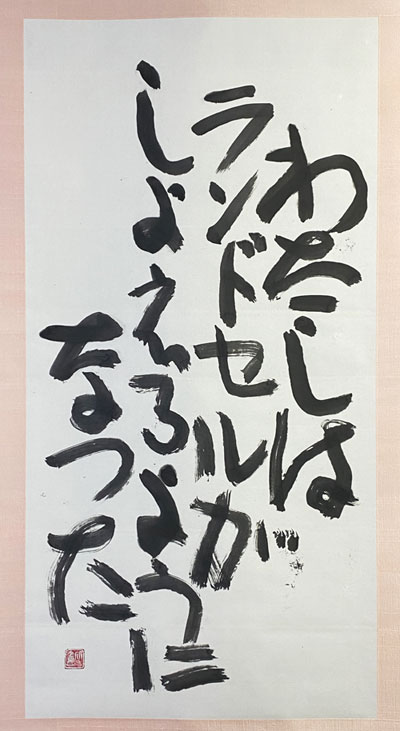 わたしは
ランドセルが
しょえるように
なった